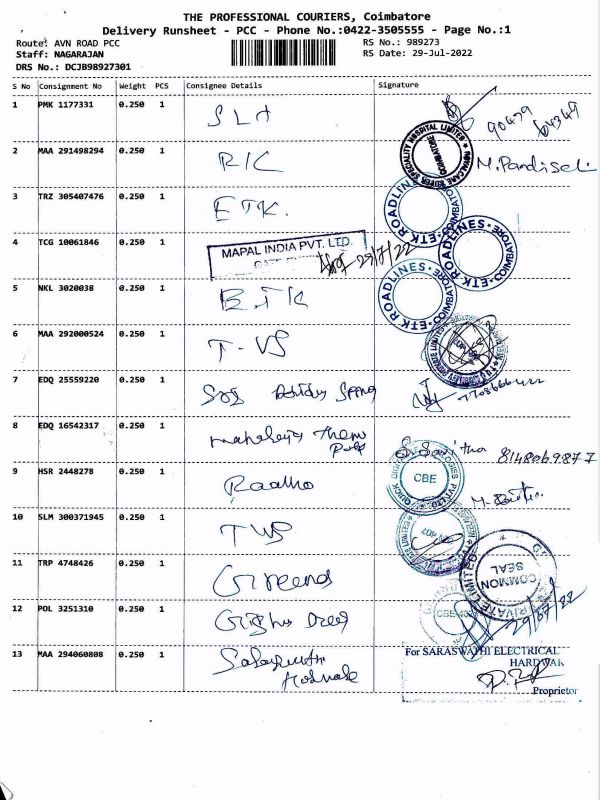 THE PROFESSIONAL COURIERS, Coimbatore
Delivery Runsheet - PCC - Phone No.:0422-3505555 - Page No.:1
Route: AVN ROAD PCC RS No.: 989273
Staff: NAGARAJAN RS Date: 29-Jul-2022
DRS No.: DCJB98927301
S No Consignment No Weight PCS Consignee Details Signature
1 PMK 1177331 0.250 1 SLA
2 MAA 291498294 0.250 1 RIC M. Pandiselvi
ROYALCARE SUPER SPECIALITY HOSPITAL LIMITED COIMBATORE
3 TRZ 305407476 0.250 1 ETK.
ETK ROADLINES COIMBATORE
4 TCG 10061846 0.250 1 MAPAL INDIA PVT. LTD. 29/7/22
ETK ROADLINES COIMBATORE
5 NKL 3020038 0.250 1 ETK
ETK ROADLINES COIMBATORE
6 MAA 292000524 0.250 1 T-VS
7 EDQ 25559220 0.250 1
8 EDQ 16542317 0.250 1 8148069877
CBE
9 HSR 2448278 0.250 1 Radho
10 SLM 300371945 0.250 1 TVS
11 TRP 4748426 0.250 1 Greens
PRIVATE LIMITED COMMON SEAL
12 POL 3251310 0.250 1 29/07/22
13 MAA 294060808 0.250 1
For SARASWATHI ELECTRICAL
HARDWAR
Proprietor